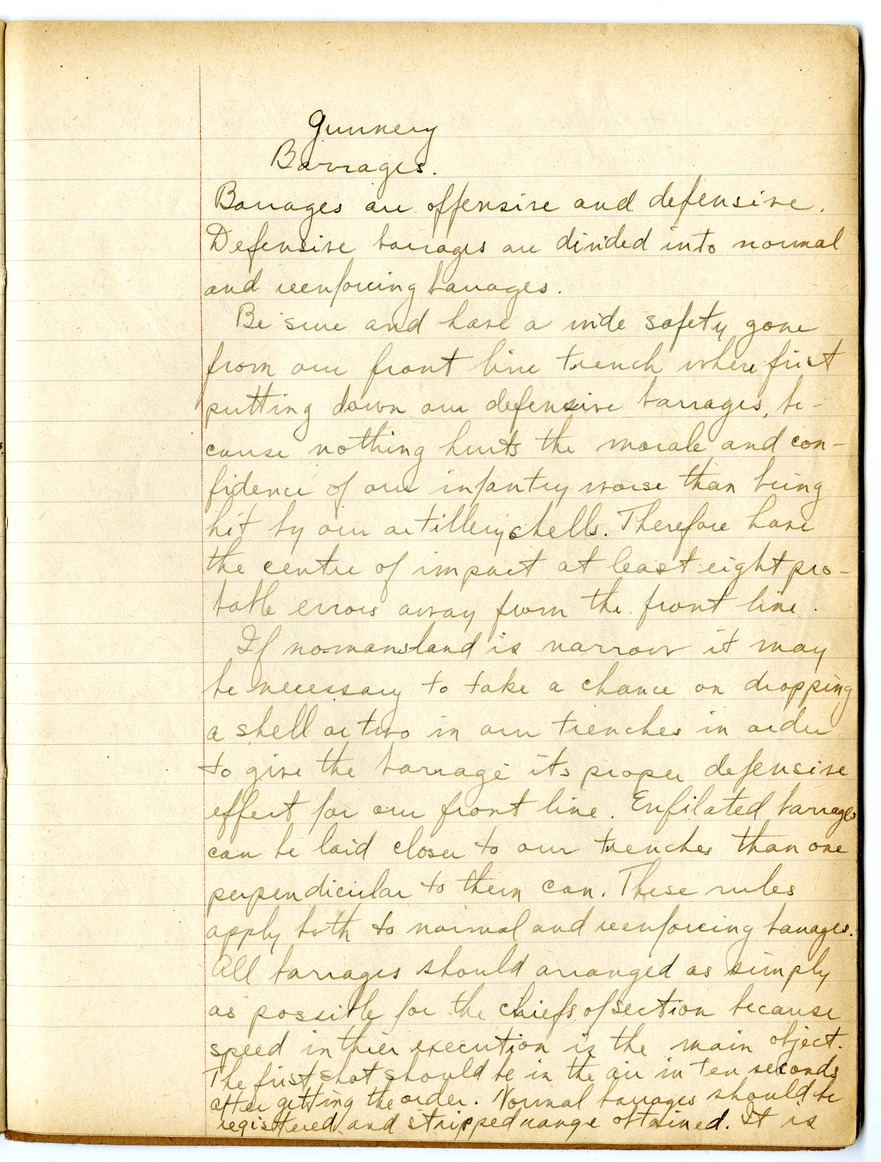 Gunnery
Barrages.
Barrages are offensive and defensive.
Defensive barrages are divided into normal
and reenforcing barrages.
Be sure and have a wide safety zone
from our front line trench where first
putting down our defensive barrages, be-
cause nothing hurts the morale and con-
fidence of our infantry worse than being
hit by our artillery shells. Therefore have
the centre of impact at least eight pro-
bable errors away from the front line.
If nomansland is narrow it may
be necessary to take a chance on dropping
a shell or two in our trenches in order
to give the barrage its proper defensive
effect for our front line. Enfilated barrages
can be laid closer to our trenches than one
perpendicular to them can. These rules
apply both to normal and reenforcing barrages.
All barrages should arranged as simply
as possible for the chiefs of section because
speed in thier execution is the main object.
The first shot should be in the air in ten seconds
after getting the order. Normal barrages should be
registered and stripped range obtained. It is